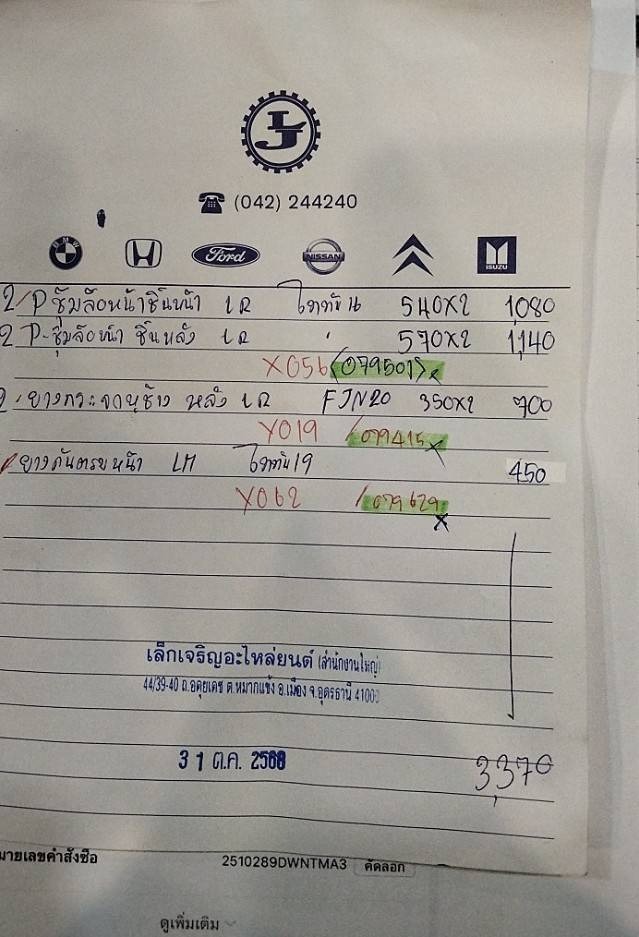 LJ
(042) 244240
BMW
H
Ford
NISSAN
ISUZU
2/P ซุ้มล้อหน้าชิ้นหน้า LR ไททัน 16 540x2 1,080
2 P-ซุ้มล้อหน้า ชิ้นหลัง LR " 570x2 1,140
X056 (079501) x
2 ยางกระจกหูช้าง หลัง LR FTN20 350x2 700
Y019 /079415 x
ยางกันครบหน้า LH ไททัน 19 450
Y062 /079629 x
เล็กเจริญอะไหล่ยนต์ (สำนักงานใหญ่)
44/39-40 ถ.อดุยเดช ต.หมากแข้ง อ.เมือง จ.อุดรธานี 41000
31 ต.ค. 2568
3,370
มายเลขคำสั่งซื้อ 2510289DWNTMA3 คัดลอก
ดูเพิ่มเติม